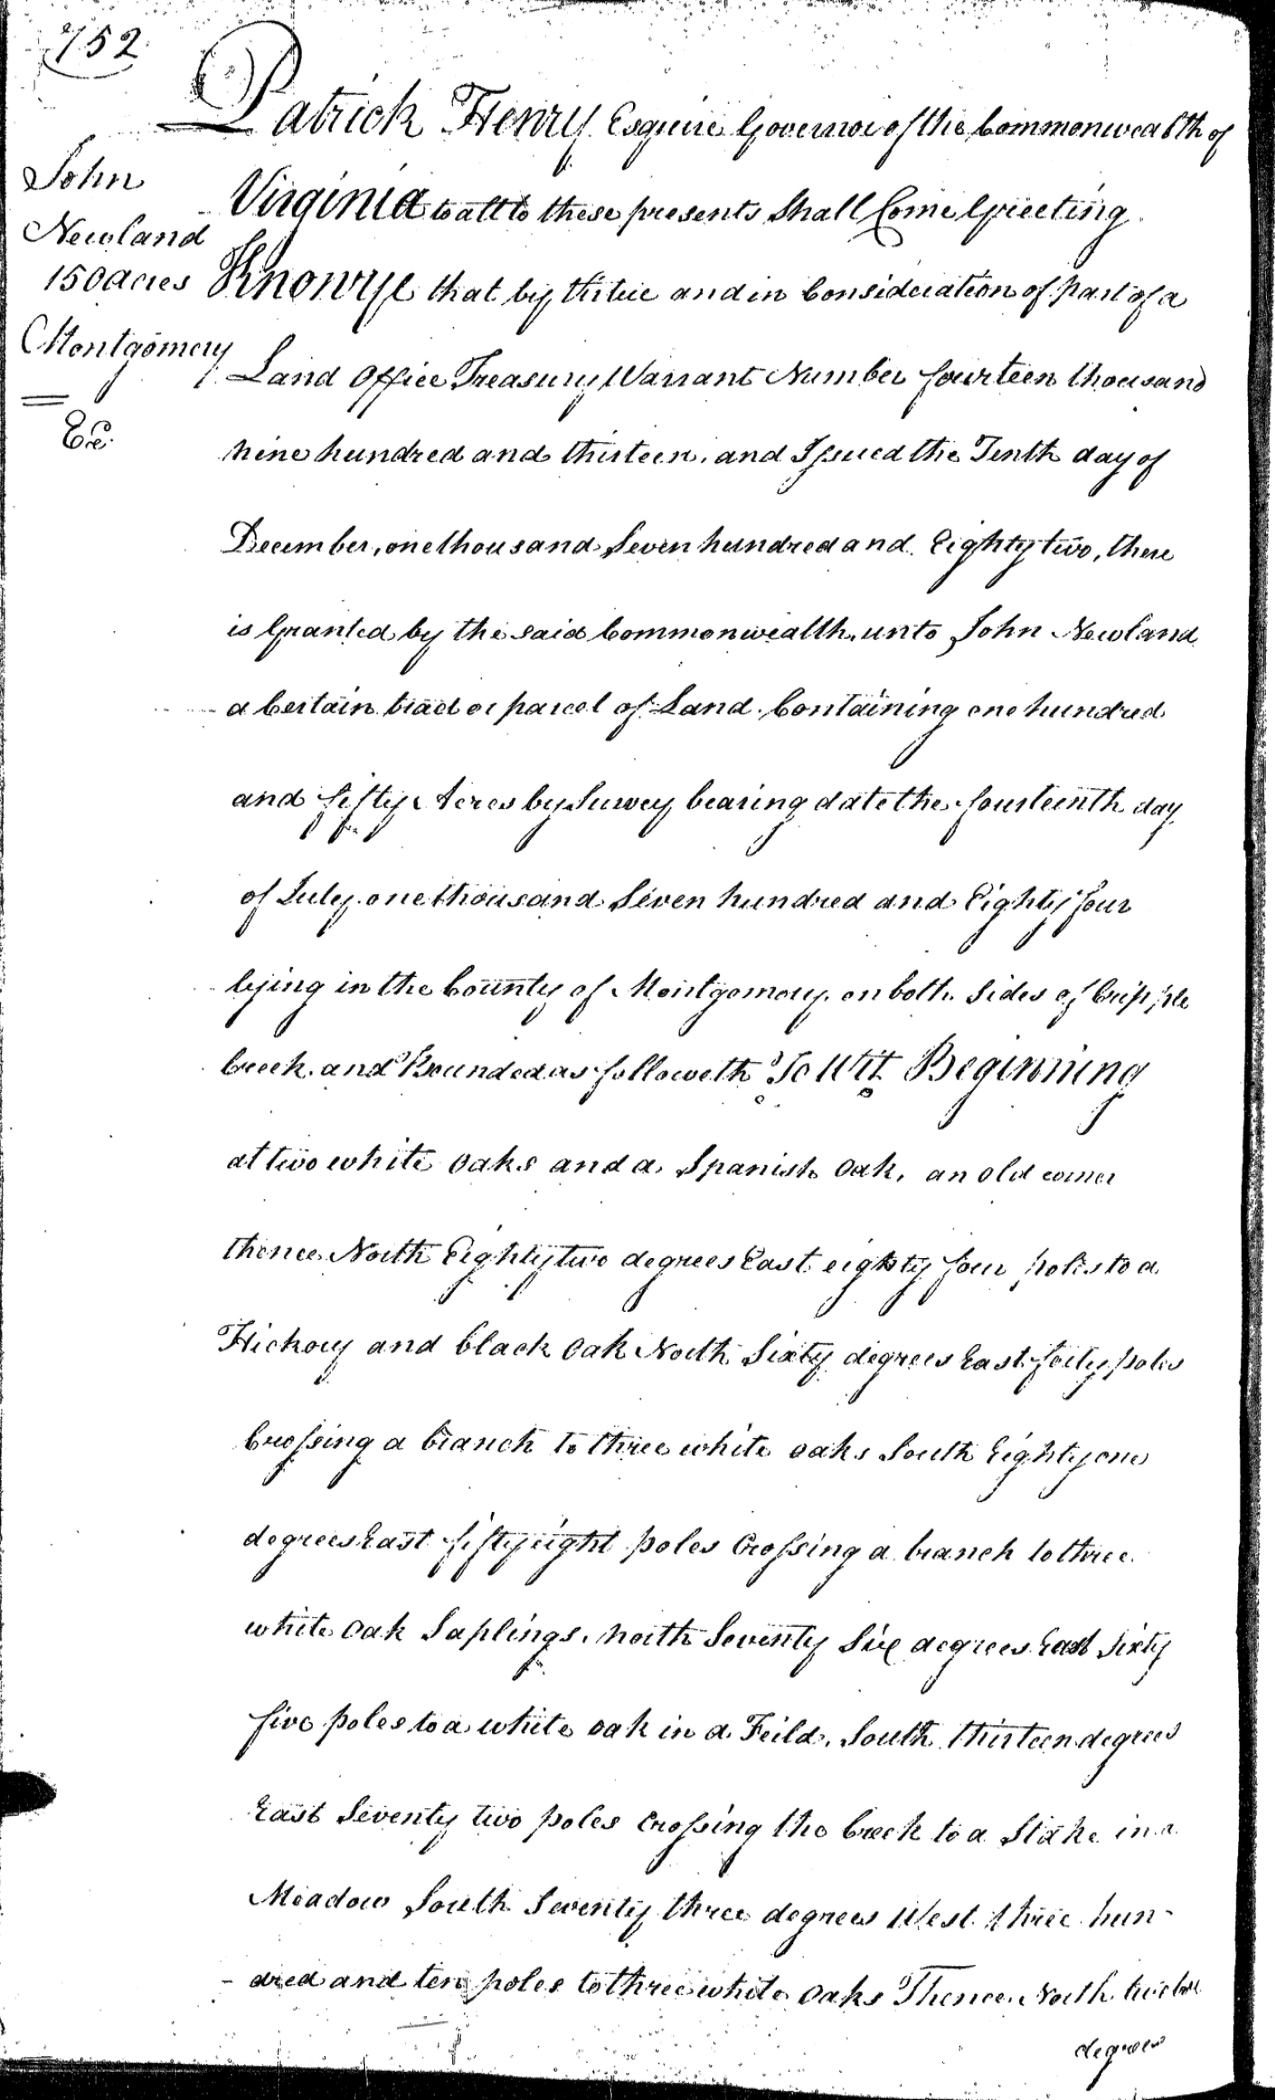 752
Patrick Henry Esquire Governor of the Commonwealth of
John
Virginia to all to these presents Shall Come Greeting.
Newland
150 acres
Know ye that by Virtue and in Consideration of part of a
Montgomery
Land Office Treasury Warrant Number fourteen thousand
nine hundred and thirteen, and Issued the Tenth day of
December, one thousand Seven hundred and Eighty two, there
is Granted by the said Commonwealth, unto John Newland
a Certain tract or parcel of Land Containing one hundred
and fifty Acres by Survey bearing date the fourteenth day
of July one thousand Seven hundred and Eighty four
lying in the County of Montgomery on both Sides of Cripple
Creek and Bounded as followeth To Wit Beginning
at two white oaks and a Spanish oak, an old corner
thence North Eighty two degrees East eighty four poles to a
Hickory and black oak North Sixty degrees East forty poles
Crossing a branch to three white oaks South Eighty one
degrees East fifty eight poles Crossing a branch to three
white oak Saplings, North Seventy Six degrees East Sixty
five poles to a white oak in a Feild, South thirteen degrees
East Seventy two poles Crossing the Creek to a Stake in a
Meadow South Seventy three degrees West three hun-
-dred and ten poles to three white oaks Thence North twelve
degrees